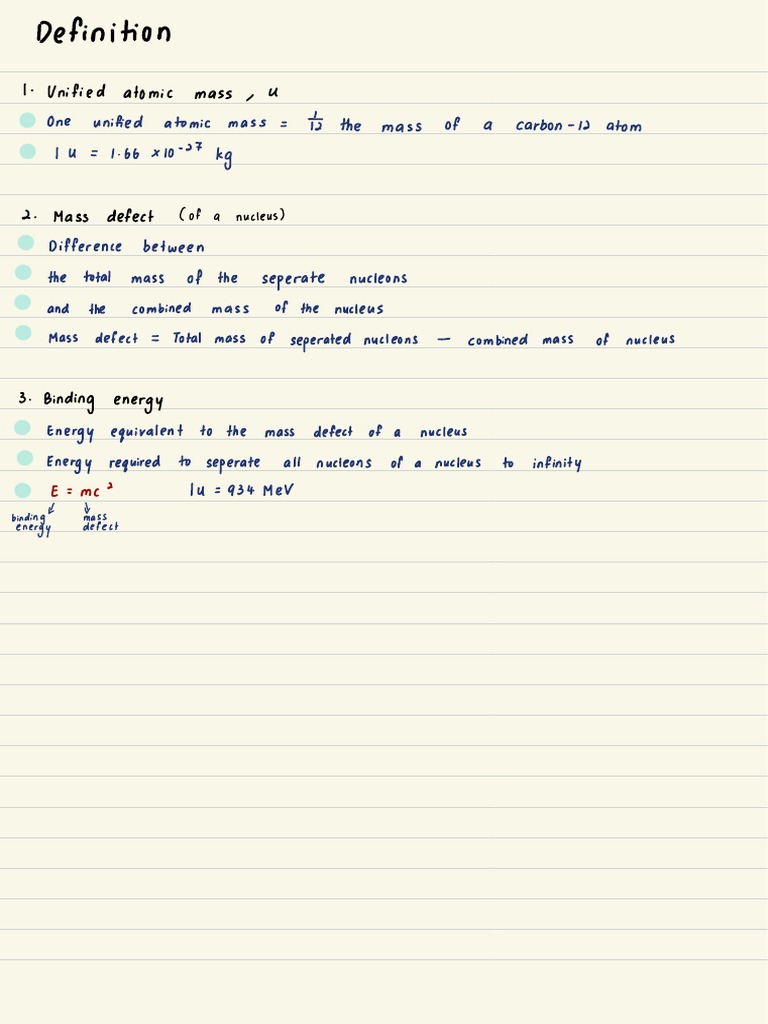 Definition
1. Unified atomic mass, u
One unified atomic mass = 1/12 the mass of a carbon-12 atom
1 u = 1.66 ×10⁻²⁷ kg
2. Mass defect (of a nucleus)
Difference between
the total mass of the seperate nucleons
and the combined mass of the nucleus
Mass defect = Total mass of seperated nucleons — combined mass of nucleus
3. Binding energy
Energy equivalent to the mass defect of a nucleus
Energy required to seperate all nucleons of a nucleus to infinity
E = mc² 1u = 934 MeV
binding mass
energy defect